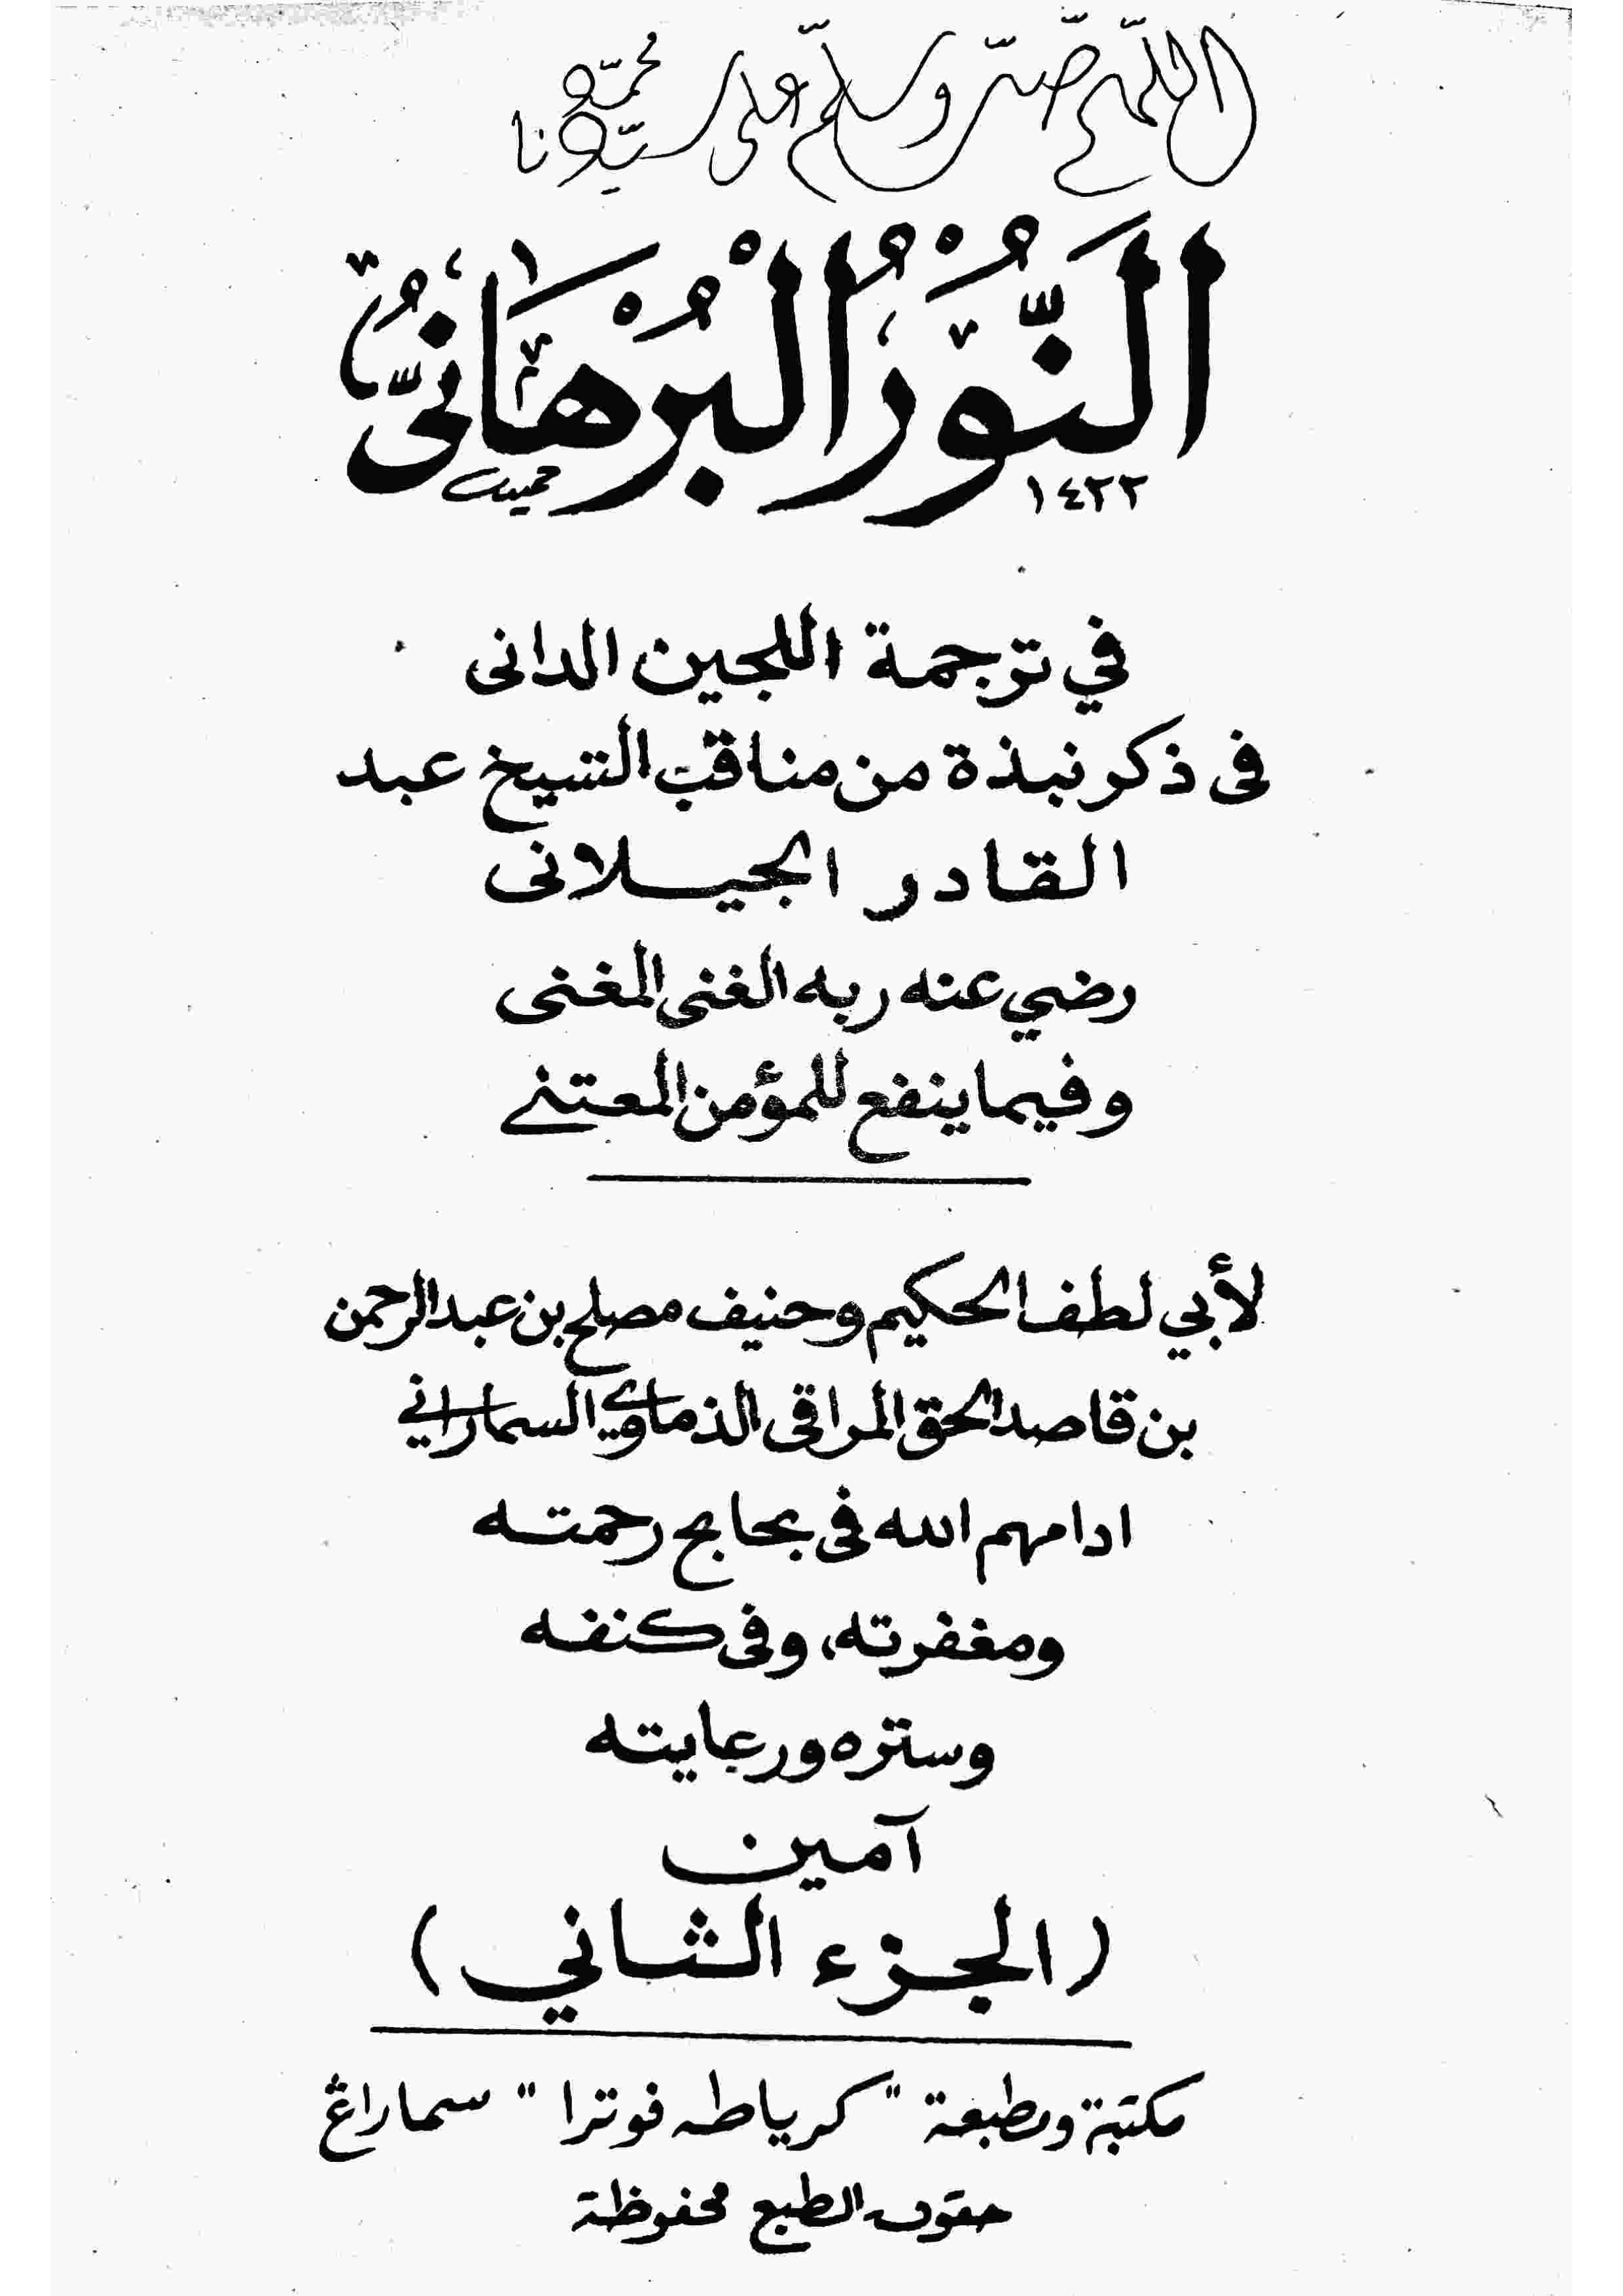 اللّهمّ صلّ وسلّم على سيّدنا محمّد
النُّوْرُ الْبُرْهَانِىُّ
١٤٢٢ حميد
في ترجمة اللجين الدانى
فى ذكر نبذة من مناقب الشيخ عبد
القادر الجيلانى
رضي عنه ربه الغنى المغنى
وفيما ينفع للمؤمن المعتنى
لأبي لطف الحكيم وحنيف مصلح بن عبد الرحمن
بن قاصد الحق المراقى الذماوي السماراني
ادامهم الله فى بحابح رحمته
ومغفرته، وفى كنفه
وستره ورعايته
آمين
(الجزء الثاني)
مكتبة ومطبعة "كرياطه فوترا" سماراڠ
حقوق الطبع محفوظة